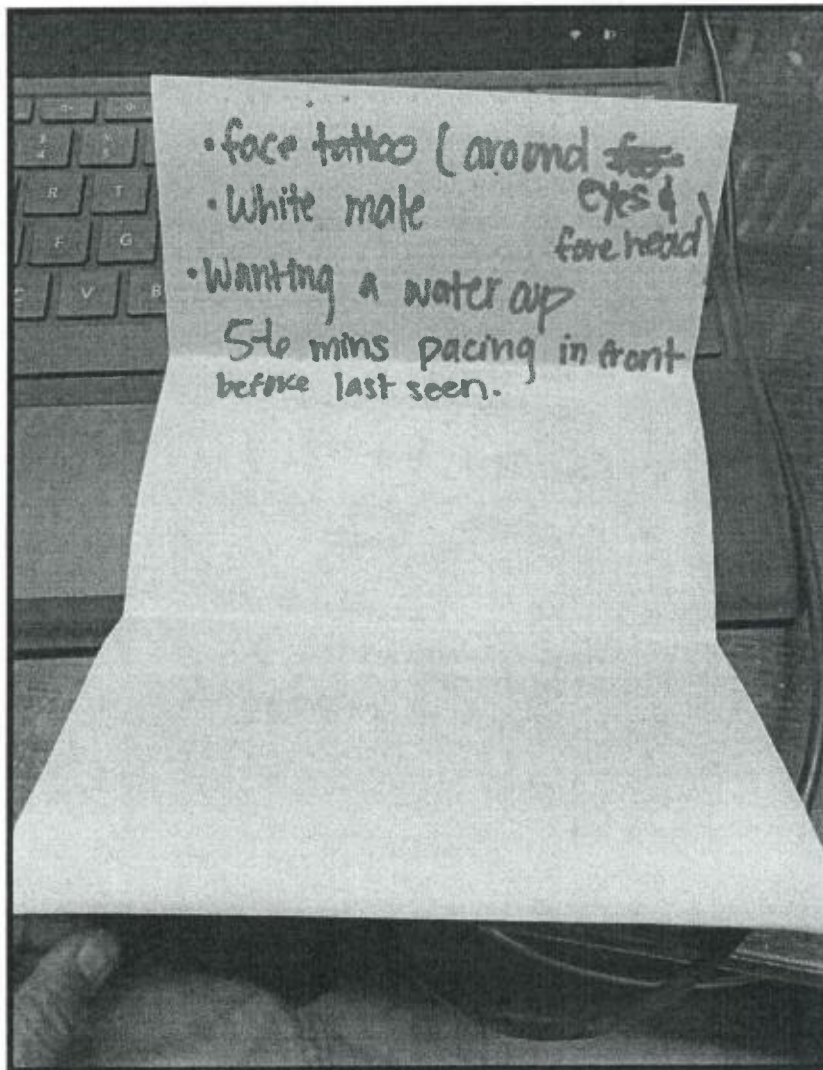 • face tattoo (around
• White male eyes &
forehead)
• Wanting a water cup
5-6 mins pacing in front
before last seen.
R T
F G
C V B